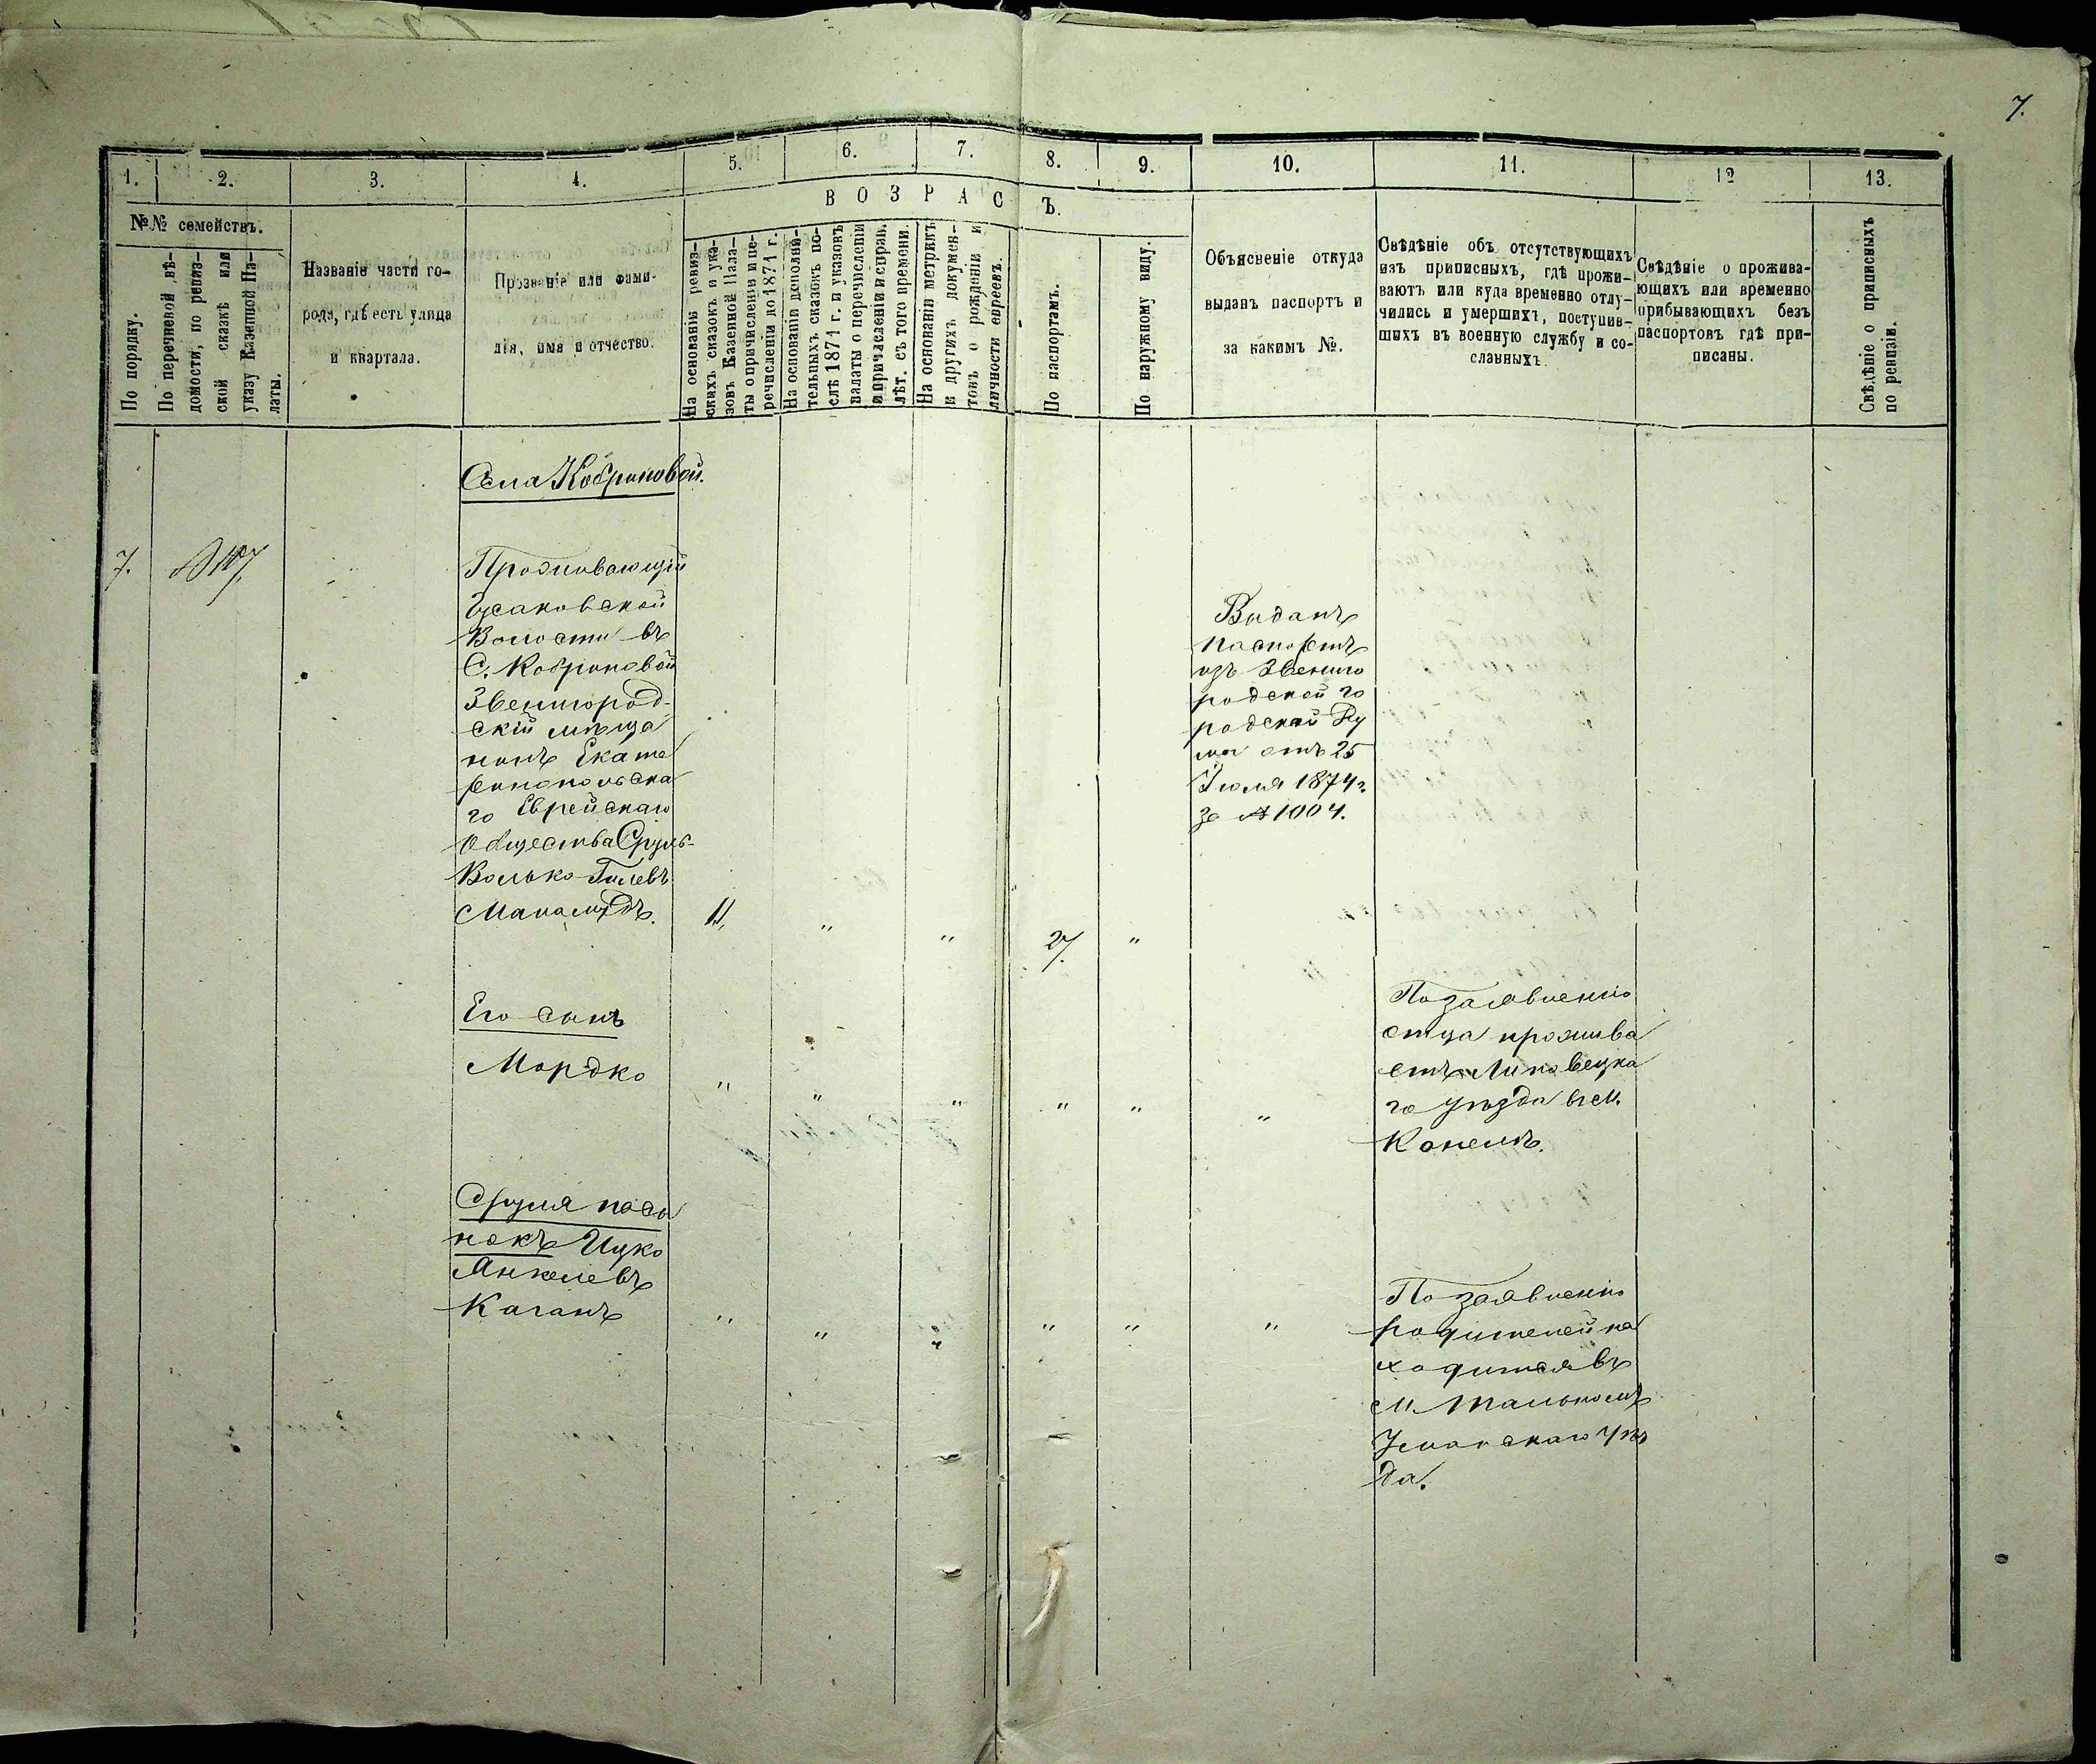 7.
1.
2.
3.
4.
5.
6.
7.
8.
9.
10.
11.
12
13.
В О З Р А С Ъ.
№№ семействъ.
По порядку.
По перечневой вѣ-
домости, по ревиз-
ской сказкѣ или
указу Казенной Па-
латы.
Названіе части го-
рода, гдѣ есть улица
и квартала.
Прозваніе или фами-
лія, имя и отчество.
На основаніи ревиз-
скихъ сказокъ и ука-
зовъ Казенной Пала-
ты о причисленіи и пе-
речисленіи до 1871 г.
На основаніи дополни-
тельныхъ сказокъ по-
слѣ 1871 г. и указовъ
палаты о перечисленіи
и причисленіи и справ.
лѣт. съ того времени.
На основаніи метрикъ
и другихъ докумен-
товъ о рожденіи и
личности евреевъ.
По паспортамъ.
По наружному виду.
Объясненіе откуда
выданъ паспортъ и
за какимъ №.
Свѣдѣніе объ отсутствующихъ
изъ приписныхъ, гдѣ прожи-
ваютъ или куда временно отлу-
чились и умершихъ, поступив-
шихъ въ военную службу и со-
сланныхъ
Свѣдѣніе о прожива-
ющихъ или временно
прибывающихъ безъ
паспортовъ гдѣ при-
писаны.
Свѣдѣніе о приписныхъ
по ревизіи.
Села Кобриновой.
7.
Проживающій
Гусаковской
Волости въ
С. Кобриновой
Звенигород-
скій мѣща
нинъ Екате
ринопольска
го Еврейскаго
Общества Сруль-
Волько Гилевъ
11.
"
"
27.
"
Выданъ
паспортъ
изъ Звениго
родской го
родской Ду
мы отъ 25
Іюля 1874 г.
за № 1004.
Его сынъ
Мордко
"
"
"
"
"
"
По заявленію
отца прожива
етъ Липовецка
го Уѣзда въ М.
Конелѣ.
Сруля пасы
нокъ Ицко
Янкелевъ
Каганъ
"
"
"
"
"
"
По заявленію
родителей на
ходится въ
М. Тальномъ
Уманскаго Уѣз
да.